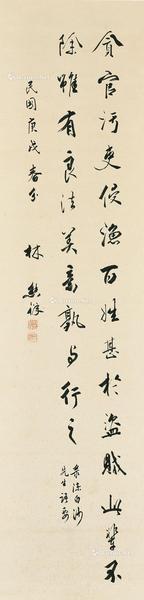 貪官污吏侵漁百姓甚於盜賊此輩不
除雖有良法美意孰與行之
錄陳白沙
先生語
民國庚戌春分
林熊祥